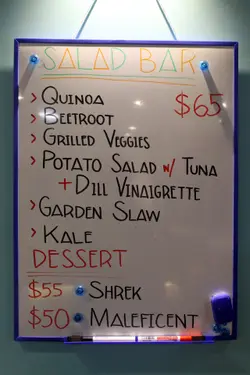 SALAD BAR
> QUINOA $65
BEETROOT
> GRILLED VEGGIES
> POTATO SALAD W/ TUNA
+ DILL VINAIGRETTE
> GARDEN SLAW
> KALE
DESSERT
$55 SHREK
$50 MALEFICENT